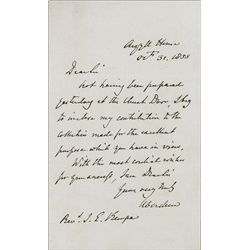 Argyll House
Octr 31. 1858
Dear Sir
Not having been prepared
yesterday at the Church Door, I beg
to inclose my contribution to the
collection made for the excellent
purpose which you have in view.
With the most cordial wishes
for your success, I am Dear Sir
Yours very truly
Aberdeen
Revd. J. E. Kempe